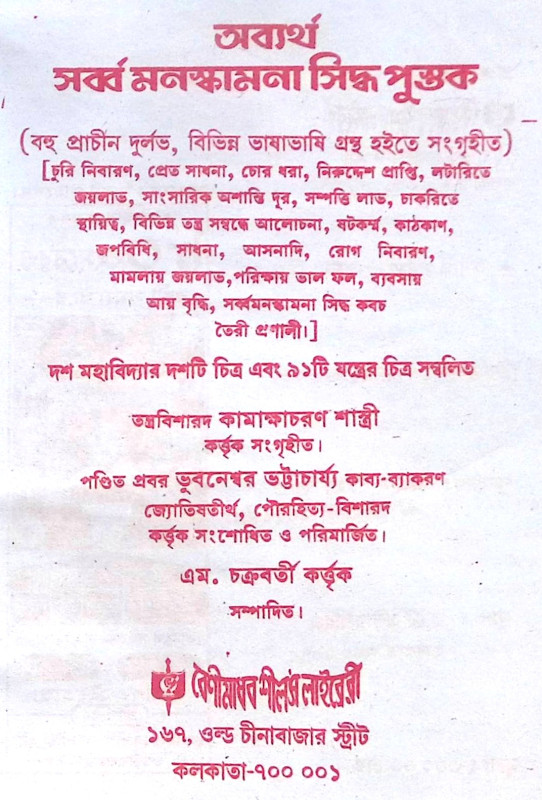 অব্যর্থ
সর্ব্ব মনস্কামনা সিদ্ধ পুস্তক
(বহু প্রাচীন দুর্লভ, বিভিন্ন ভাষাভাষি গ্রন্থ হইতে সংগৃহীত)
[চুরি নিবারণ, প্রেত সাধনা, চোর ধরা, নিরুদ্দেশ প্রাপ্তি, লটারিতে
জয়লাভ, সাংসারিক অশান্তি দূর, সম্পত্তি লাভ, চাকরিতে
স্থায়িত্ব, বিভিন্ন তন্ত্র সম্বন্ধে আলোচনা, ষটকর্ম্ম, কাঠকাণ,
জপবিধি, সাধনা, আসনাদি, রোগ নিবারণ,
মামলায় জয়লাভ,পরিক্ষায় ভাল ফল, ব্যবসায়
আয় বৃদ্ধি, সর্ব্বমনস্কামনা সিদ্ধ কবচ
তৈরী প্রণালী।]
দশ মহাবিদ্যার দশটি চিত্র এবং ৯১টি যন্ত্রের চিত্র সম্বলিত
তন্ত্রবিশারদ কামাক্ষাচরণ শাস্ত্রী
কর্ত্তৃক সংগৃহীত।
পণ্ডিত প্রবর ভুবনেশ্বর ভট্টাচার্য্য কাব্য-ব্যাকরণ
জ্যোতিষতীর্থ, পৌরহিত্য-বিশারদ
কর্ত্তৃক সংশোধিত ও পরিমার্জিত।
এম. চক্রবর্তী কর্ত্তৃক
সম্পাদিত।
বেণীমাধব শীলস লাইব্রেরী
১৬৭, ওল্ড চীনাবাজার স্ট্রীট
কলকাতা-৭০০ ০০১